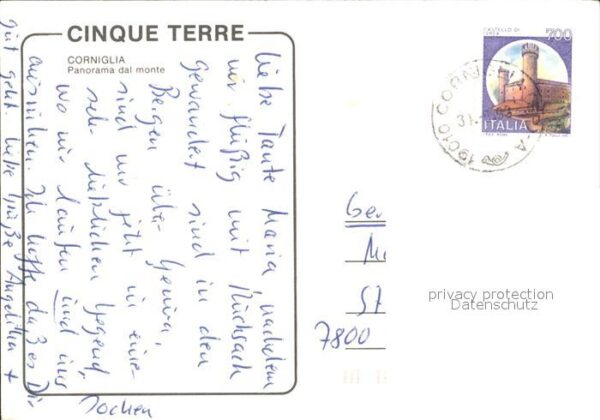 CINQUE TERRE
CORNIGLIA
Panorama dal monte
Liebe Tante Maria, nachdem
wir fleißig mit Rucksack
gewandert sind in den
Bergen über Genua,
sind wir jetzt in einer
sehr lieblichen Gegend,
wo wir laufen und uns
ausruhen. Ich hoffe daß es Dir
gut geht. Liebe Grüße Angelika +
Jochen
CASTELLO DI
700
ITALIA
19010 CORNIGLIA
31.
7800
privacy protection
Datenschutz